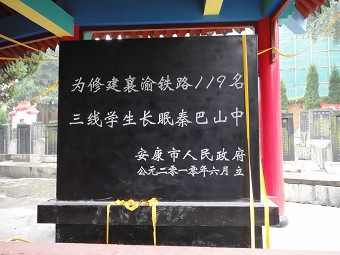 为修建襄渝铁路119名
三线学生长眠秦巴山中
安康市人民政府
公元二零一零年六月 立